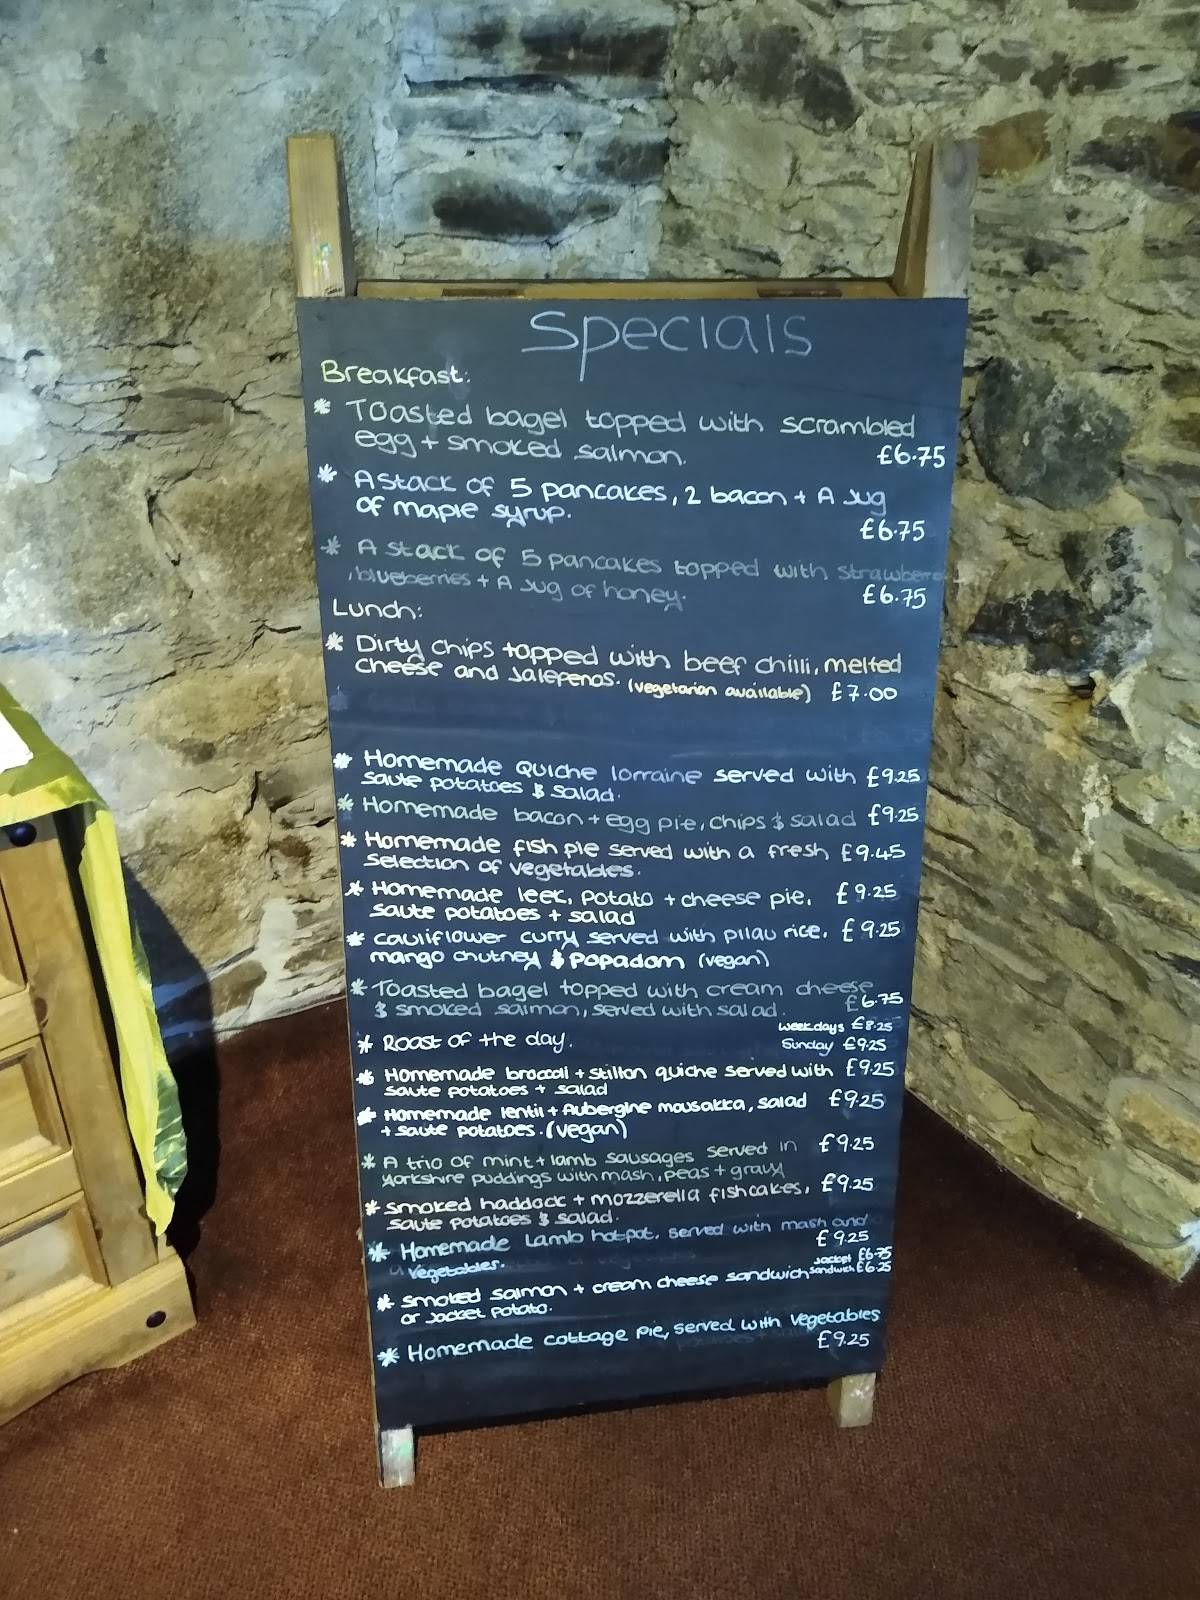 Specials
Breakfast:
* Toasted bagel topped with scrambled
egg + smoked salmon. £6.75
* A stack of 5 pancakes, 2 bacon + A Jug
of maple syrup.
£6.75
* A stack of 5 pancakes topped with
, blueberries + A Jug of honey. £6.75
Lunch:
* Dirty chips topped with beef chilli, melted
cheese and Jalepenos. (vegetarian available) £7.00
* Homemade Quiche lorraine served with £9.25
saute potatoes & salad.
* Homemade bacon + egg pie, chips & salad £9.25
* Homemade fish pie served with a fresh £9.45
selection of vegetables.
* Homemade leek, potato + cheese pie, £9.25
saute potatoes + salad
* cauliflower curry served with pilau rice, £9.25
mango chutney & popadom (vegan)
* Toasted bagel topped with cream cheese
& smoked salmon, served with salad. £6.75
weekdays £8.25
* Roast of the day. Sunday £9.25
* Homemade broccoli + stilton quiche served with £9.25
saute potatoes + salad
* Homemade lentil + Aubergine mousakka, salad £9.25
+ saute potatoes. (vegan)
* A trio of mint + lamb sausages served in £9.25
yorkshire puddings with mash, peas + gravy
* smoked haddock + mozzerella fishcakes, £9.25
saute potatoes & salad.
* Homemade Lamb hotpot, served with mash and
vegetables. £9.25
Jacket £6.75
* smoked salmon + cream cheese sandwich sandwich £6.25
or Jacket potato.
* Homemade cottage pie, served with vegetables
£9.25